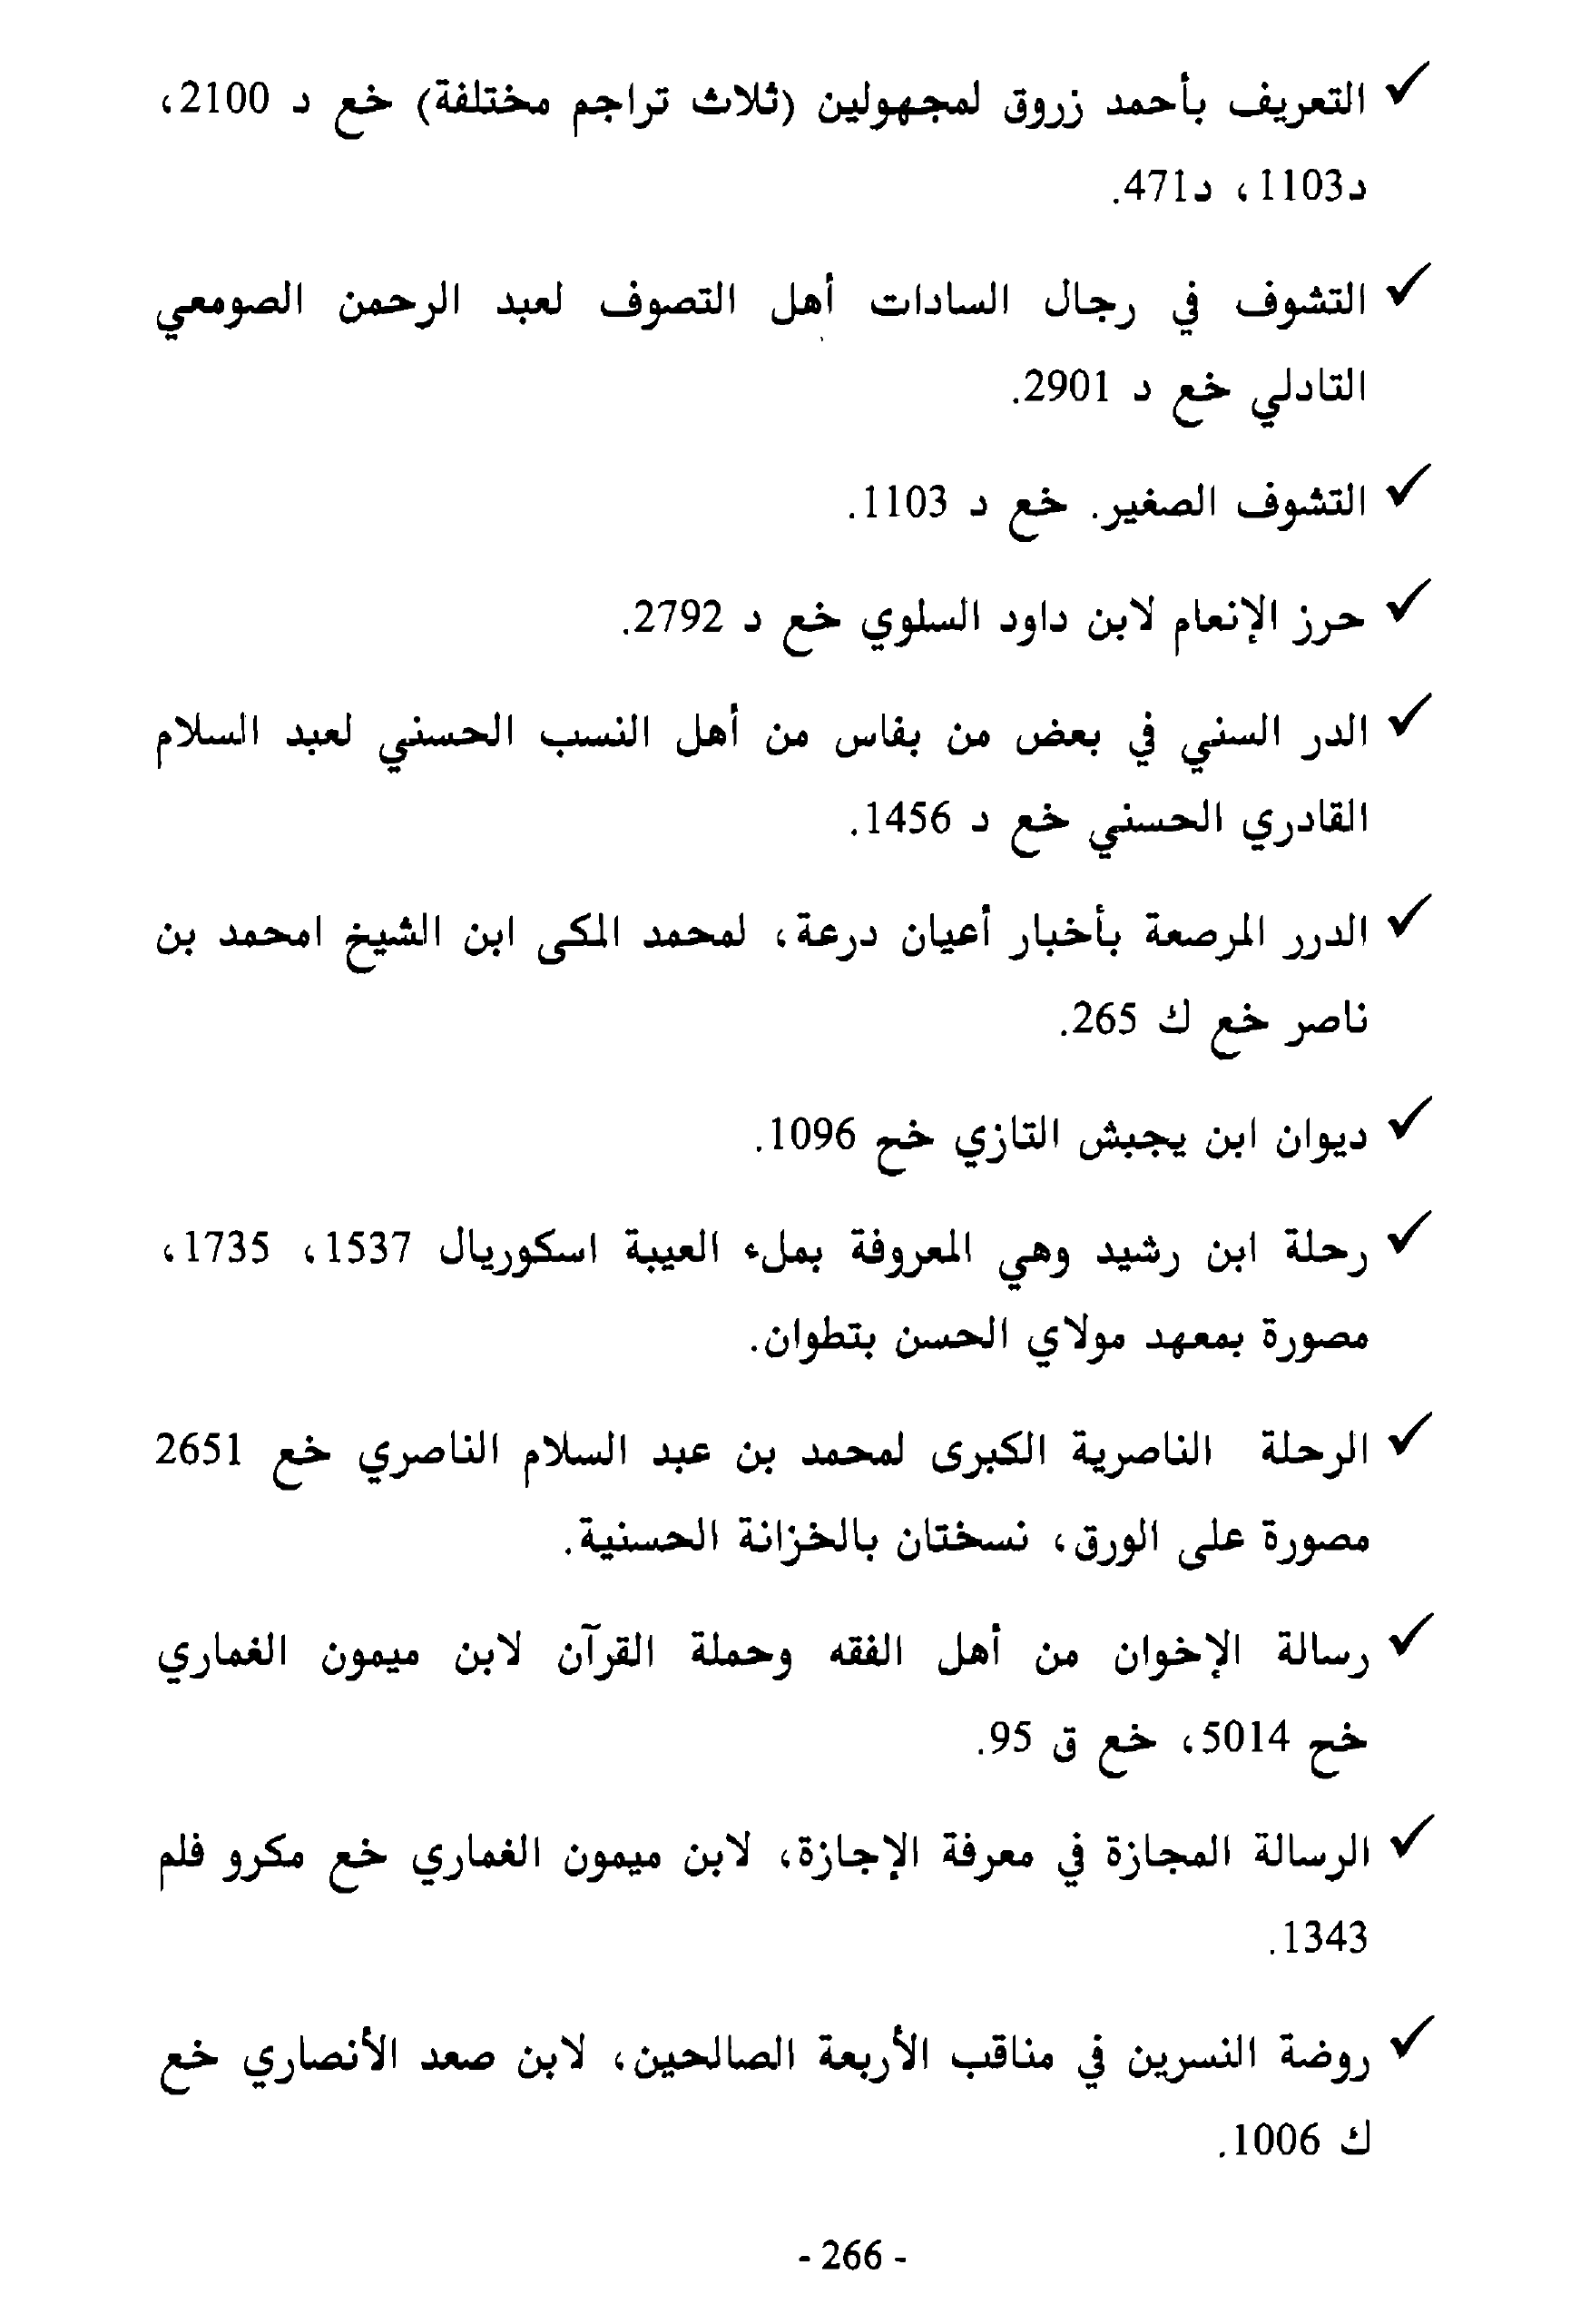 ✓ التعريف بأحمد زروق لمجهولين (ثلاث تراجم مختلفة) خع د 2100،
د1103، د471.
✓ التشوف في رجال السادات أهل التصوف لعبد الرحمن الصومعي
التادلي خع د 2901.
✓ التشوف الصغير. خع د 1103.
✓ حرز الإنعام لابن داود السلوي خع د 2792.
✓ الدر السني في بعض من بفاس من أهل النسب الحسني لعبد السلام
القادري الحسني خع د 1456.
✓ الدرر المرصعة بأخبار أعيان درعة، لمحمد المكى ابن الشيخ امحمد بن
ناصر خع ك 265.
✓ ديوان ابن يجبش التازي خح 1096.
✓ رحلة ابن رشيد وهي المعروفة بملء العيبة اسكوريال 1537، 1735،
مصورة بمعهد مولاي الحسن بتطوان.
✓ الرحلة الناصرية الكبرى لمحمد بن عبد السلام الناصري خع 2651
مصورة على الورق، نسختان بالخزانة الحسنية.
✓ رسالة الإخوان من أهل الفقه وحملة القرآن لابن ميمون الغماري
خح 5014، خع ق 95.
✓ الرسالة المجازة في معرفة الإجازة، لابن ميمون الغماري خع مكرو فلم
1343.
✓ روضة النسرين في مناقب الأربعة الصالحين، لابن صعد الأنصاري خع
ك 1006.
- 266 -